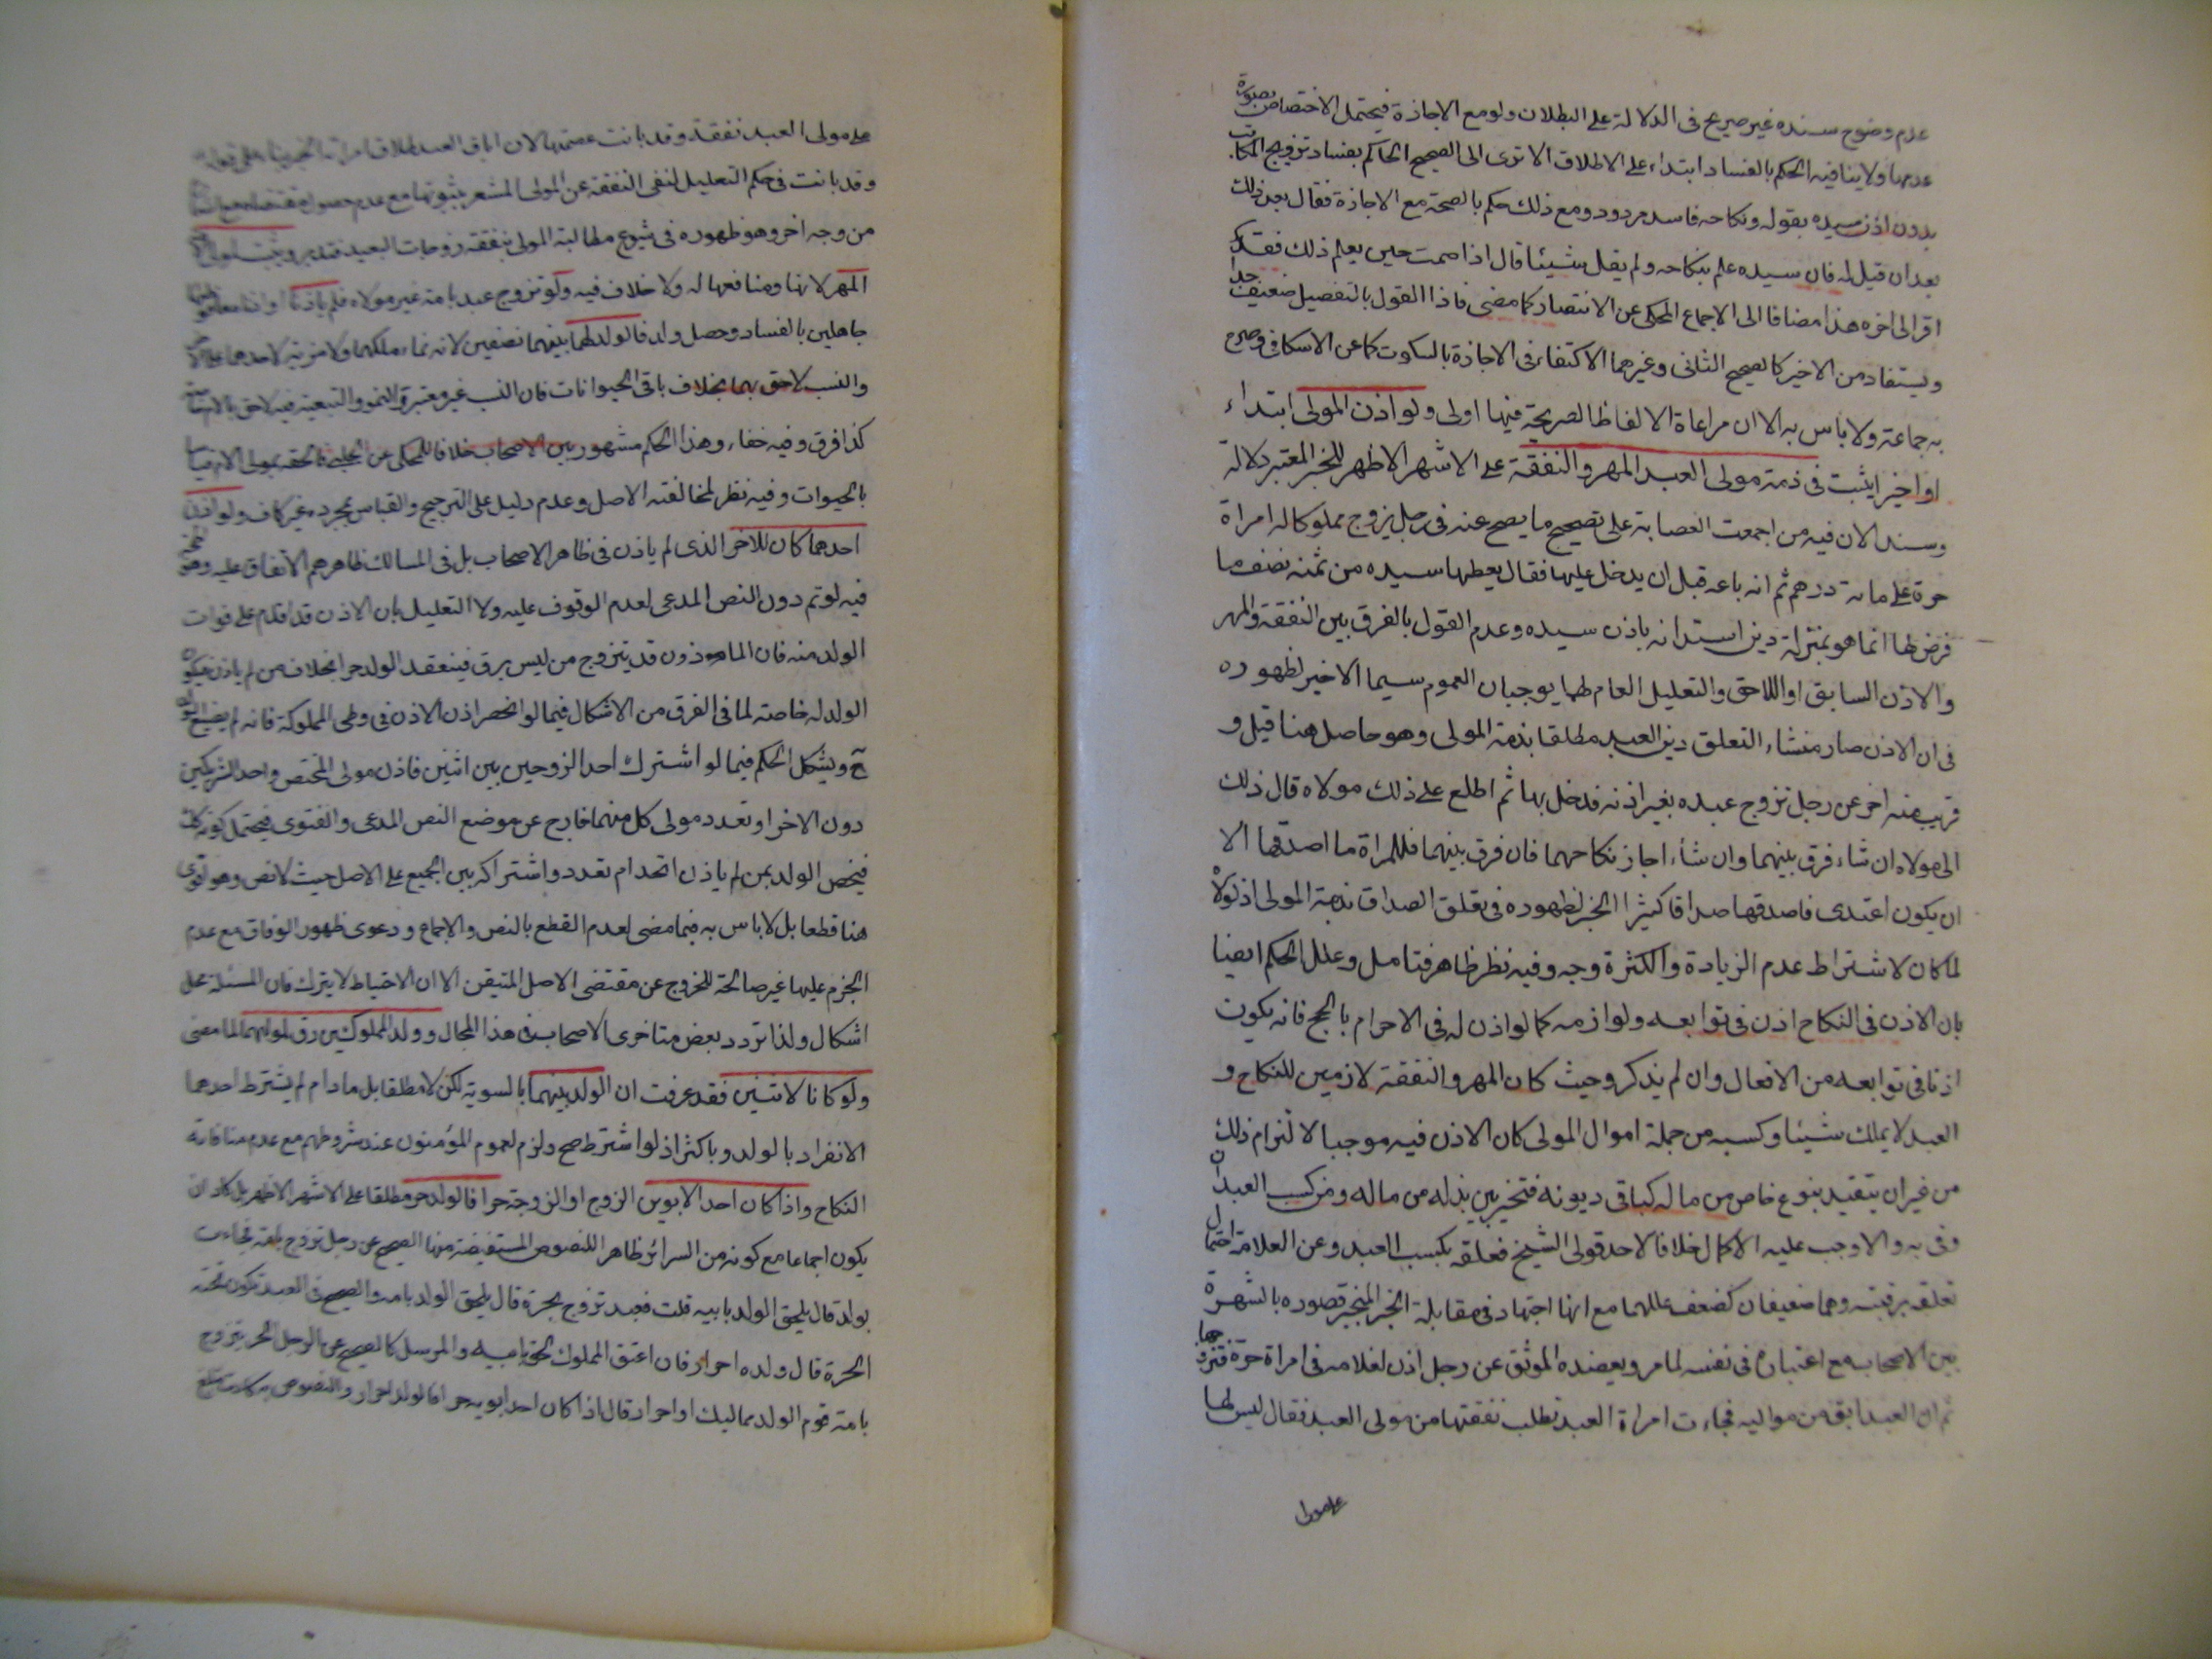 عدم وضوح سنده غير صريح فى الدلالة على البطلان ولو مع الاجازة فيحتمل الاختصاص بصورة
عدمها ولا ينافيه الحكم بالفساد ابتداء على الاطلاق الا ترى الى الصحيح الحاكم بفساد تزويج المكاتب
بدون اذن سيده بقوله ونكاحه فاسد مردود ومع ذلك حكم بالصحة مع الاجازة فقال بعد ذلك
بعد ان قيل له فان سيده علم بنكاحه ولم يقل شيئا قال اذا صمت حين يعلم ذلك فقد
اقر الى اخره هذا مضافا الى الاجماع المحكى عن الانتصار كما مضى فاذا القول بالتفصيل ضعيف جدا
ويستفاد من الاخير كالصحيح الثانى وغيرهما الاكتفاء فى الاجازة بالسكوت كما عن الاسكافى وصرح
به جماعة ولا باس به الا ان مراعاة الالفاظ الصريحة فيها اولى ولو اذن المولى ابتداء
او اخيرا يثبت فى ذمة مولى العبد المهر والنفقة على الاشهر الاظهر للخبر المعتبر دلالة
وسندا لان فيه من اجمعت العصابة على تصحيح ما يصح عنه فى رجل يزوج مملوكا له امراة
حرة على مائة درهم ثم انه باعه قبل ان يدخل عليها فقال يعطيها سيده من ثمنه نصف ما
فرض لها انما هو بمنزلة دين استدانه باذن سيده وعدم القول بالفرق بين النفقة والمهر
والاذن السابق او اللاحق والتعليل العام لهما يوجبان العموم سيما الاخير لظهوره
فى ان الاذن صار منشاء التعلق دين العبد مطلقا بذمة المولى وهو حاصل هنا قيل و
قريب منه اخر عن رجل تزوج عبده بغير اذنه فدخل بها ثم اطلع على ذلك مولاه قال ذلك
الى مولاه ان شاء فرق بينهما وان شاء اجاز نكاحهما فان فرق بينهما فللمراة ما اصدقها الا
ان يكون اعتدى فاصدقها صداقا كثيرا الخبر لظهوره فى تعلق الصداق بذمة المولى اذ لولاه
لما كان لاشتراط عدم الزيادة والكثرة وجه وفيه نظر ظاهر فتامل وعلل الحكم ايضا
بان الاذن فى النكاح اذن فى توابعه ولوازمه كما لو اذن له فى الاحرام بالحج فانه يكون
اذنا فى توابعه من الافعال وان لم يذكر وحيث كان المهر والنفقة لازمين للنكاح و
العبد لا يملك شيئا وكسبه من جملة اموال المولى كان الاذن فيه موجبا لالتزام ذلك
من غير ان يتقيد بنوع خاص من ماله كباقى ديونه فتخير بين بذله من ماله ومن كسب العبد ان
وفى به والا وجب عليه الاكمال خلافا لاحد قولى الشيخ فعلقه بكسب العبد وعن العلامة احتمال
تعلقه برقبته وهما ضعيفان كضعف عللهما مع انها اجتهاد فى مقابلة الخبر المنجبر قصوره بالشهرة
بين الاصحاب مع اعتباره فى نفسه لما مر ويعضده الموثق عن رجل اذن لغلامه فى امراة حرة فتزوجها
ثم ان العبد ابق من مواليه فجاءت امراة العبد تطلب نفقتها من مولى العبد فقال ليس لها
على مولى
على مولى العبد نفقة وقد بانت عصمتها لان اباق العبد طلاق امراته الخبر بناء على قوله
وقد بانت فى حكم التعليل لنفى النفقة عن المولى المشعر بثبوتها مع عدم حصول
من وجه اخر وهو ظهوره فى شيوع مطالبة المولى بنفقة زوجات العبيد فتدبر ويثبت لمولى
المهر لانها ومنافعها له ولا خلاف فيه ولو تزوج عبد بامة غير مولاه فلم ياذنا او اذنا معا
جاهلين بالفساد وحصل ولد فالولد لهما بينهما نصفين لانه نماء ملكهما ولا مزية لاحدهما على
والنسب لاحق بهما بخلاف باقى الحيوانات فان النسب غير معتبر والنمو والتبعية فيه لاحق بالام
كذا فرق وفيه خفاء وهذا الحكم مشهور بين الاصحاب خلافا للمحكى عن الحلبى فالحقه بمولى الام قياسا
بالحيوانات وفيه نظر لمخالفته الاصل وعدم دليل على الترجيح والقياس بمجرده غير كاف ولو اذن
احدهما كان للاخر الذى لم ياذن فى ظاهر الاصحاب بل فى المسالك ظاهرهم الاتفاق عليه وهو
فيه لو تم دون النص المدعى لعدم الوقوف عليه ولا التعليل بان الاذن قد اقدم على فوات
الولد منه فان الماذون قد يتزوج من ليس برق فينعقد الولد حرا بخلاف من لم ياذن فيكون
الولد له خاصته لما فى الفرق من الاشكال فيما لو انحصر اذن الاذن فى وطى المملوكة فانه لم يضيع الولد
ح ويشكل الحكم فيما لو اشترك احد الزوجين بين اثنين فاذن مولى المختص واحد الشريكين
دون الاخر او تعدد مولى كل منهما فارح عن موضع النص المدعى والفتوى فيحتمل كونه كك
فيختص الولد بمن لم ياذن اتحد ام تعدد واشتراكه بين الجميع على الاصل حيث لا نص وهو اقوى
هنا قطعا بل لا باس به فيما مضى لعدم القطع بالنص والاجماع ودعوى ظهور الوفاق مع عدم
الجزم عليها غير صالحة للخروج عن مقتضى الاصل المتيقن الا ان الاحتياط لا يترك فان المسئلة محل
اشكال ولذا تردد بعض متاخرى الاصحاب فى هذا المجال وولد المملوكين رق لمولاهما لما مضى
ولو كانا لاثنين فقد عرفت ان الولد بينهما بالسوية لكن لا مطلقا بل ما دام لم يشترط احدهما
الانفراد بالولد وباكثر اذ لو اشترط صح ولزم لعموم المؤمنون عند شروطهم مع عدم منافاته
النكاح واذا كان احد الابوين الزوج او الزوجة حرا فالولد حر مطلقا على الاشهر الاظهر بل كاد ان
يكون اجماعا مع كونه من السرائر ظاهرا للنصوص المستفيضة منها الصحيح عن رجل تزوج بامة فجاءت
بولد قال يلحق الولد بابيه قلت فعبد تزوج بحرة قال يلحق الولد بامه والصحيح فى العبد تكون تحته
الحرة قال ولده احرار فان اعتق المملوك لحق بابيه والمرسل كالصحيح عن الرجل الحر يتزوج
بامة قوم الولد مماليك او احرار قال اذا كان احد ابويه حرا فالولد احرار والنصوص به كادت تبلغ